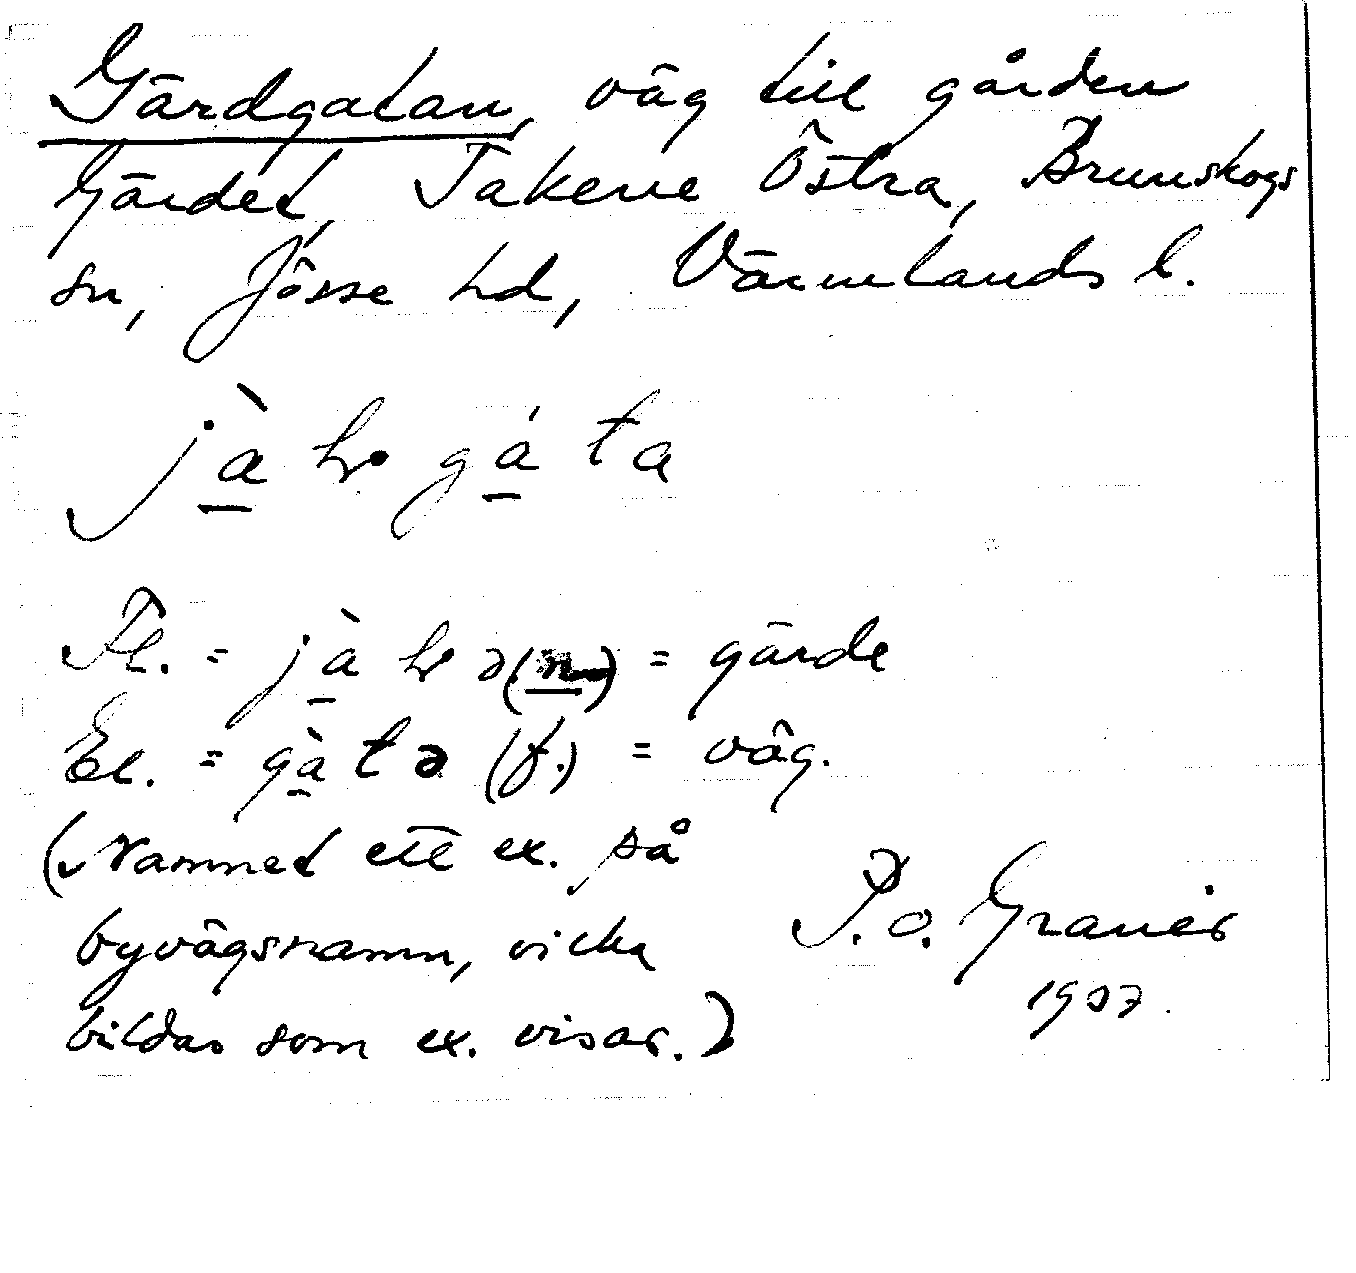 Gärdgatan, väg till gården
Gärdet, Takene Östra, Brunskogs
sn, Jösse hd, Värmlands l.
Fl. = = gärde
El. = gàtə (f.) = väg.
(Namnet ett ex. på
byvägsnamn, vilka
bildas som ex. visar.)
P. O. Granér
1937.